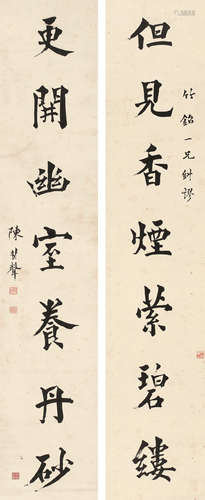 但見香煙縈碧縷
竹銘一兄糾謬
更開幽室養丹砂
陳其聲